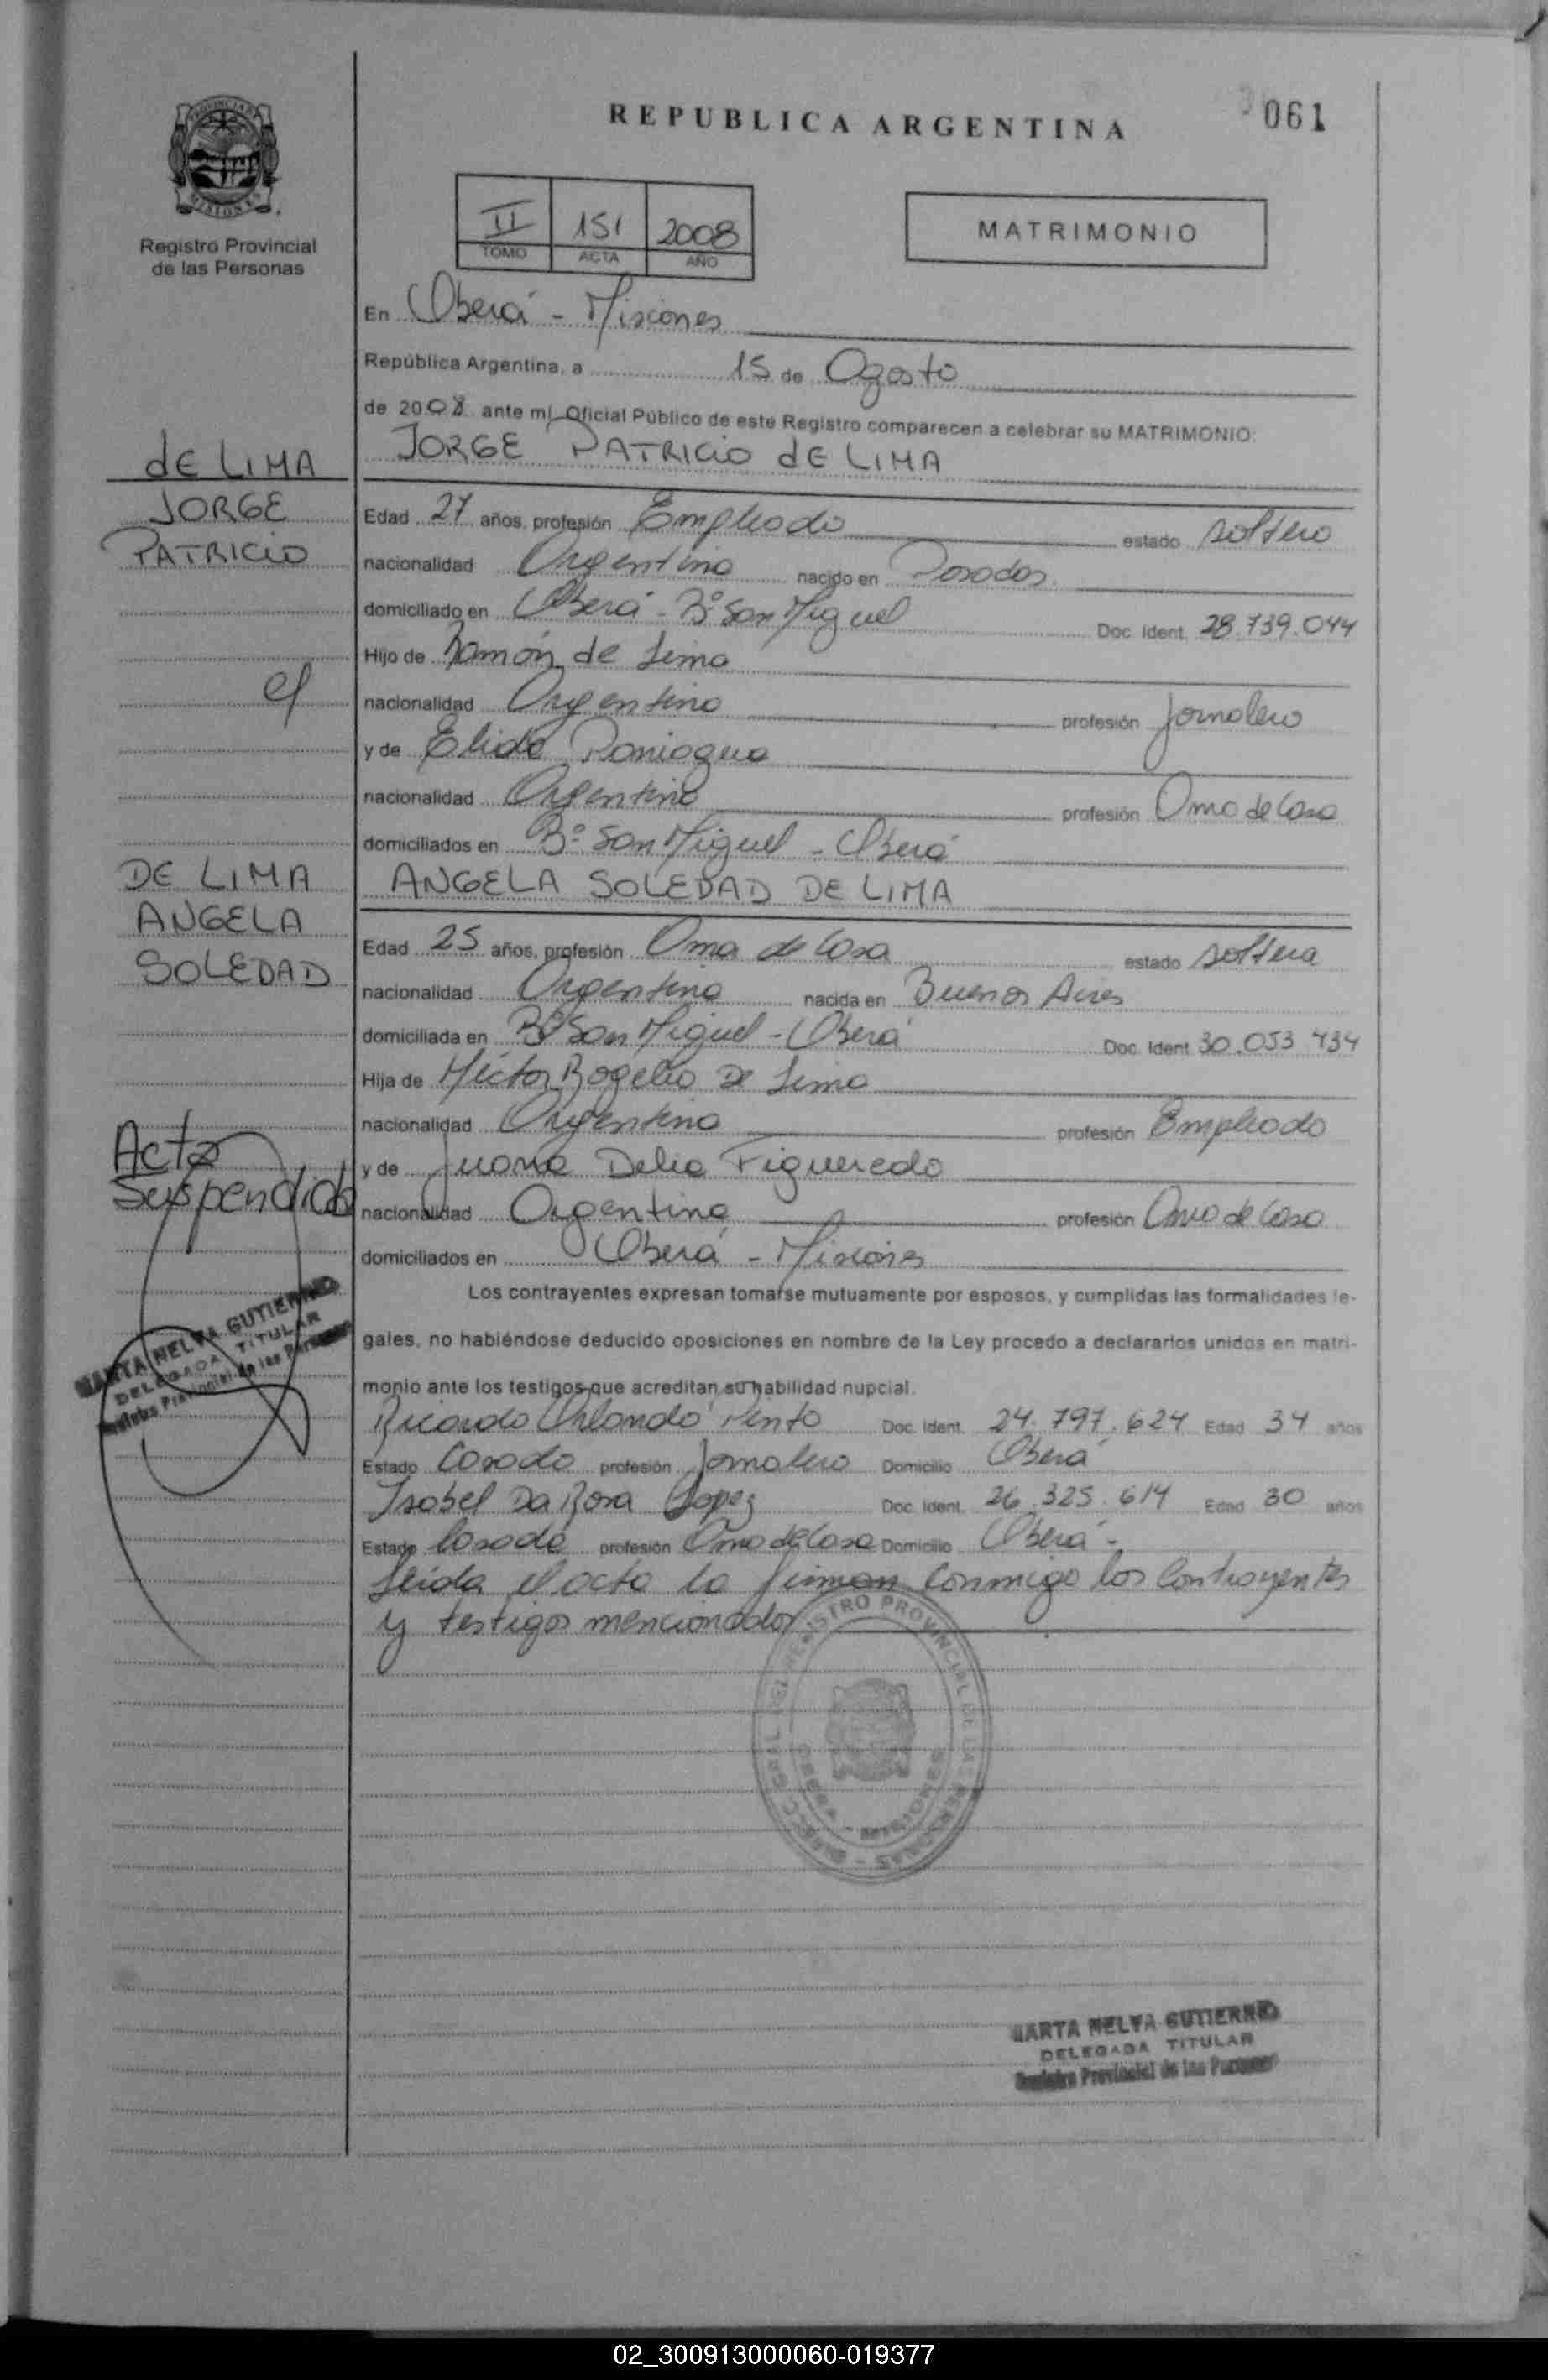 REPUBLICA ARGENTINA
061
PROVINCIA DE
MISIONES
Registro Provincial
de las Personas
II 151 2008
TOMO ACTA AÑO
MATRIMONIO
En Oberá - Misiones
República Argentina, a 15 de Agosto
de 2008 ante mí, Oficial Público de este Registro comparecen a celebrar su MATRIMONIO:
JORGE PATRICIO dE LIMA
dE LIMA
JORGE
PATRICIO
Edad 27 años, profesión Empleado estado soltero
nacionalidad Argentina nacido en Posadas
domiciliado en Oberá - Bº San Miguel Doc. Ident. 28.739.044
Hijo de Ramón de Lima
nacionalidad Argentina profesión Jornalero
y de Elida Paniagua
nacionalidad Argentina profesión Ama de Casa
domiciliados en Bº San Miguel - Oberá
ANGELA SOLEDAD DE LIMA
DE LIMA
ANGELA
SOLEDAD
Edad 25 años, profesión Ama de Casa estado soltera
nacionalidad Argentina nacida en Buenos Aires
domiciliada en Bº San Miguel - Oberá Doc. Ident. 30.053 434
Hija de Héctor Rogelio De Lima
nacionalidad Argentina profesión Empleado
y de Juana Delia Figueredo
nacionalidad Argentina profesión Ama de Casa
domiciliados en Oberá - Misiones
Acta
Suspendida
MARTA NELVA GUTIERREZ
DELEGADA TITULAR
Registro Provincial de las Personas
Los contrayentes expresan tomarse mutuamente por esposos, y cumplidas las formalidades le-
gales, no habiéndose deducido oposiciones en nombre de la Ley procedo a declararlos unidos en matri-
monio ante los testigos que acreditan su habilidad nupcial.
Ricardo Orlando Pinto Doc. Ident. 24.797.624 Edad 34 años
Estado Casado profesión Jornalero Domicilio Oberá
Isabel Da Rosa Lopez Doc. Ident. 26.325.614 Edad 30 años
Estado Casada profesión Ama de Casa Domicilio Oberá -
Leída el acta la firman conmigo los Contrayentes
y testigos mencionados
REGISTRO PROVINCIAL DE LAS PERSONAS
OBERA - MISIONES
MARTA NELVA GUTIERREZ
DELEGADA TITULAR
Registro Provincial de las Personas
02_300913000060-019377